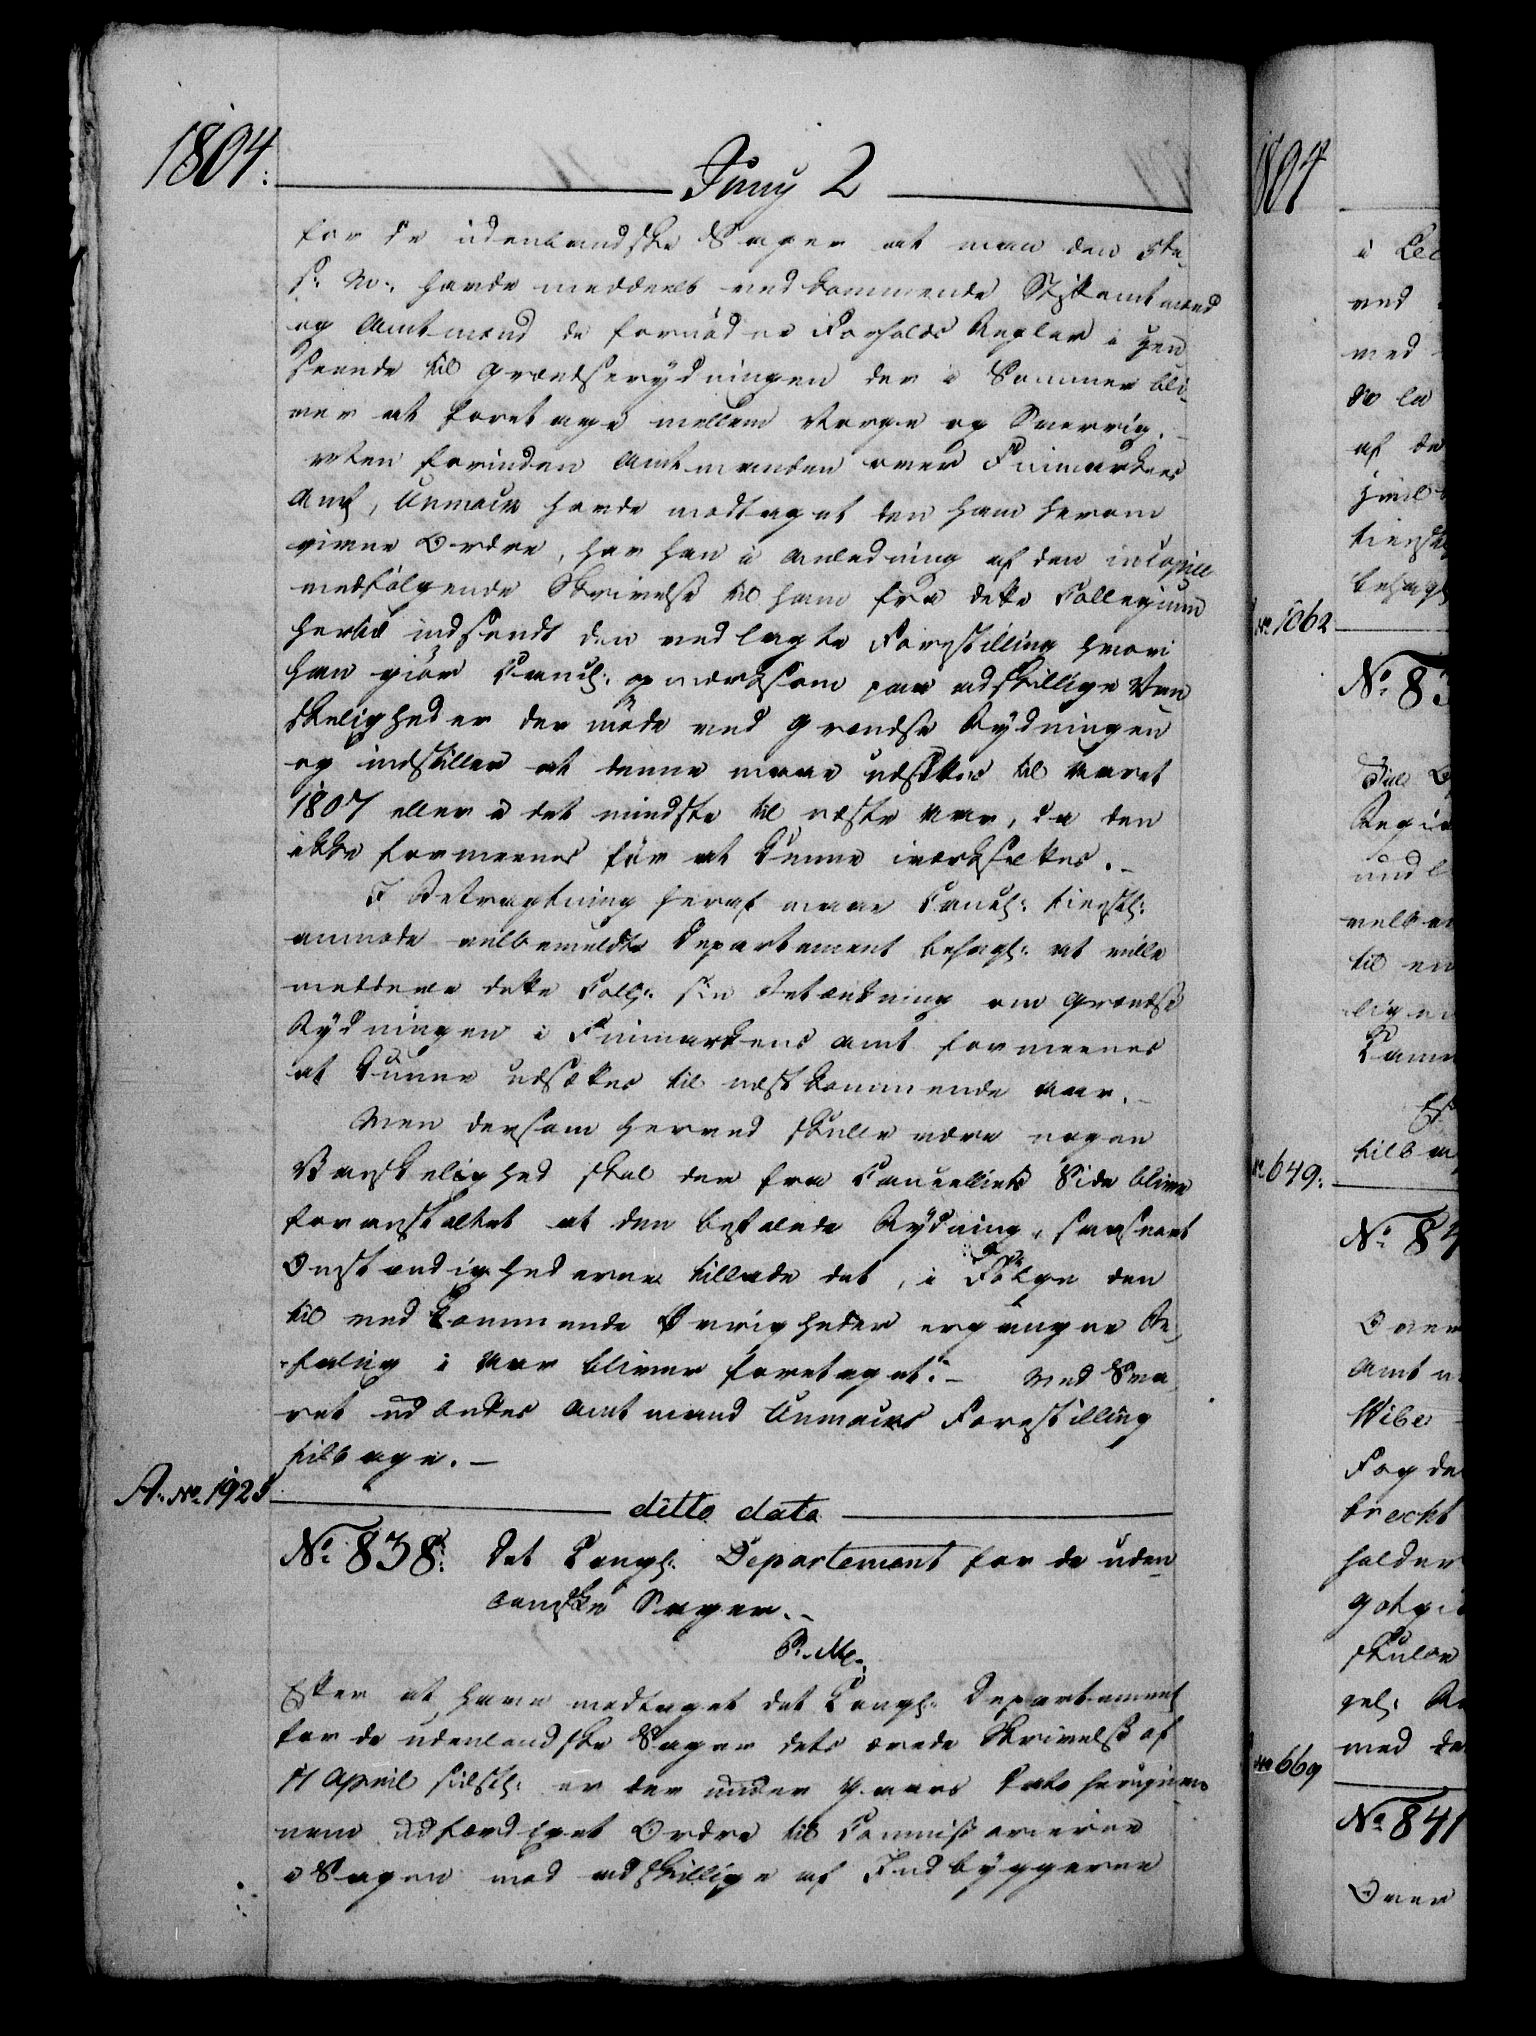 1804.
Juny 2
for de udenlandske Sager at man den 5te
s: M: havde meddeelt vedkommende Stiftamtmænd
og Amtmænd de fornødne Forholds Regler i Hen
seende til Grændserydningen der i Sommer bli-
ver at foretage mellem Norge og Sverrig.
Uden forinden Amtmanden over Finmarkens
Amt, Unmack havde modtaget den ham herom
givne Ordre, har han i Anledning af den in Copill
medfølgende Skrivelse til ham fra dette Collegium
hertil indsendt den vedlagte Forestilling hvori
han giør Cancl: opmærksom paa adskillige Van
skeligheder der møde ved Grændse Rydningen
og indstiller at denne maae udsættes til Aaret
1807 eller i det mindste til næste Aar, da den
ikke formeenes før at kunne iværksættes.
I Betragtning heraf maae Cancl: tienstl:
anmode velbemeldte Departement behagl: at ville
meddeele dette Coll: sin Betænkning om Grændse
Rydningen i Finmarkens Amt formeenes
at kunne udsættes til næstkommende Aar.
Men dersom herved skulle være nogen
Vanskelighed skal der fra Cancelliets Side blive
foranstaltet at den befalede Rydning, saasnart
Omstændighederne tillade det, i Følge den
til vedkommende Øvrigheder ergangne Be-
faling i Aar bliver foretaget. Med Sva-
ret udbedes Amtmand Unmacks Forestilling
tilbage.
A. No 1925
ditto dato
No 838. Det Kongl: Departement for de uden-
landske Sager.
P. M.
Efter at have modtaget det Kongl: Departement
for de udenlandske Sager dets ærede Skrivelse af
17 April sidstl: er der under
nem udfærdiget Ordre til Commissarierne
i Sagen mod adskillige af Indbyggerne
1804
ved
med
af de
No 1062
No 83
til en
No 649.
No 84
Over
Amt
Wibe
Fogde
brecht
holder
skulde
med de
No 669
No 841
Over